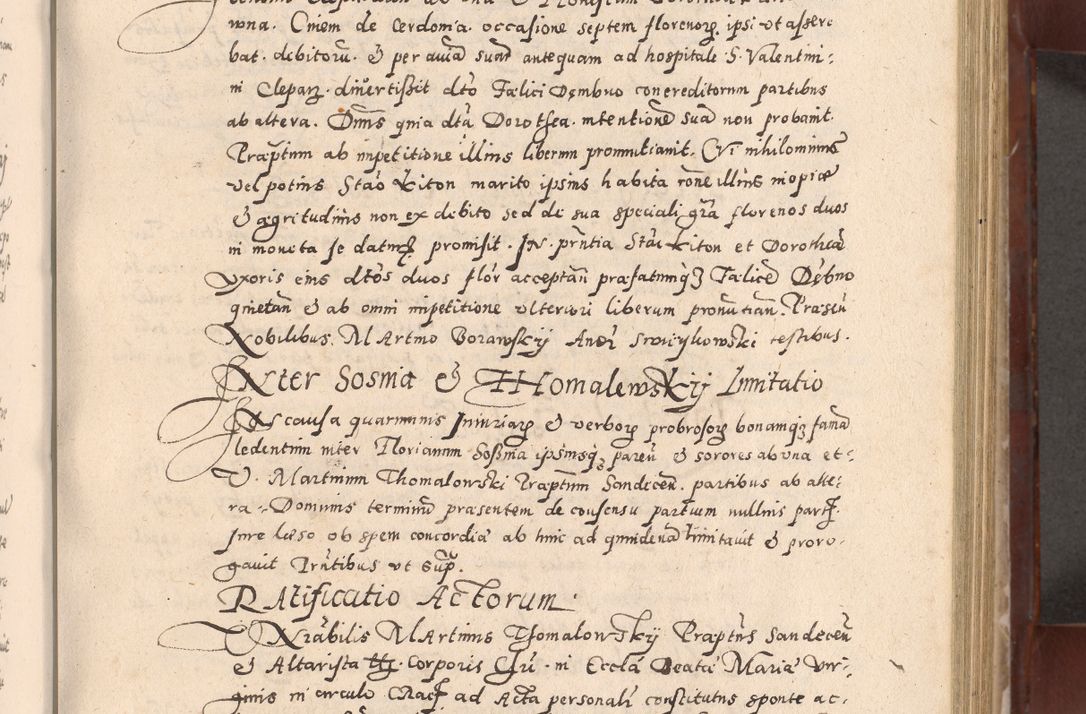 wna. Criem de Cerdonia. occasione septem florenorz. ipsi vt assere
bat. debitorũ. & per auiã suam antequam ad hospitale S. Valentini:
in Cleparz. diuertissit dto Fælici Dembno conereditorum partibus
ab altera. Dnūs quia dta Dorothea. intentionē suā non probauit.
Præptum ab impetitione illius liberum pronuntiauit. Cui nihilominus
vel potius Stao Kiton marito ipsius habita rone illius inopiæ
& ægritudinis non ex debito sed de sua speciali gra florenos duos
in moneta se daturz promisit. In. prntia Stai Kiton et Dorotheæ
vxoris eius dtos duos flor acceptañ præfatumqz Fælicē Dębno
quietañ & ab omni impetitione vlteriori liberum pronūtiañ. Præseñ
Nobilibus. Martino Borawskÿ Andr Swieykowski testibus.
Inter Sosnia & THomalewskÿ Limitatio
In causa quarumuis Iniuriarz & verborz probrosorz bonamqz famā
ledentium inter Florianum Sosnia ipsiusqz pareñ & sorores ab vna et:
V. Martinum Thomalowski Præptum Sandeceñ. partibus ab alte:
ra. Dominus terminũ præsentem de consensu partium nullius part.
Iure læso ob spem concordiæ ab hinc ad quindenã limitauit & proro-
gauit Prntibus vt sup.
Ratificatio Actorum.
Vnrabilis Martinus Thomalowskÿ Præptus Sandeceñ
& Altarista ttz. Corporis Chri. in Eccla Beatæ Mariæ Vir:
ginis in circulo Crac ad Acta personalr constitutus sponte ac: